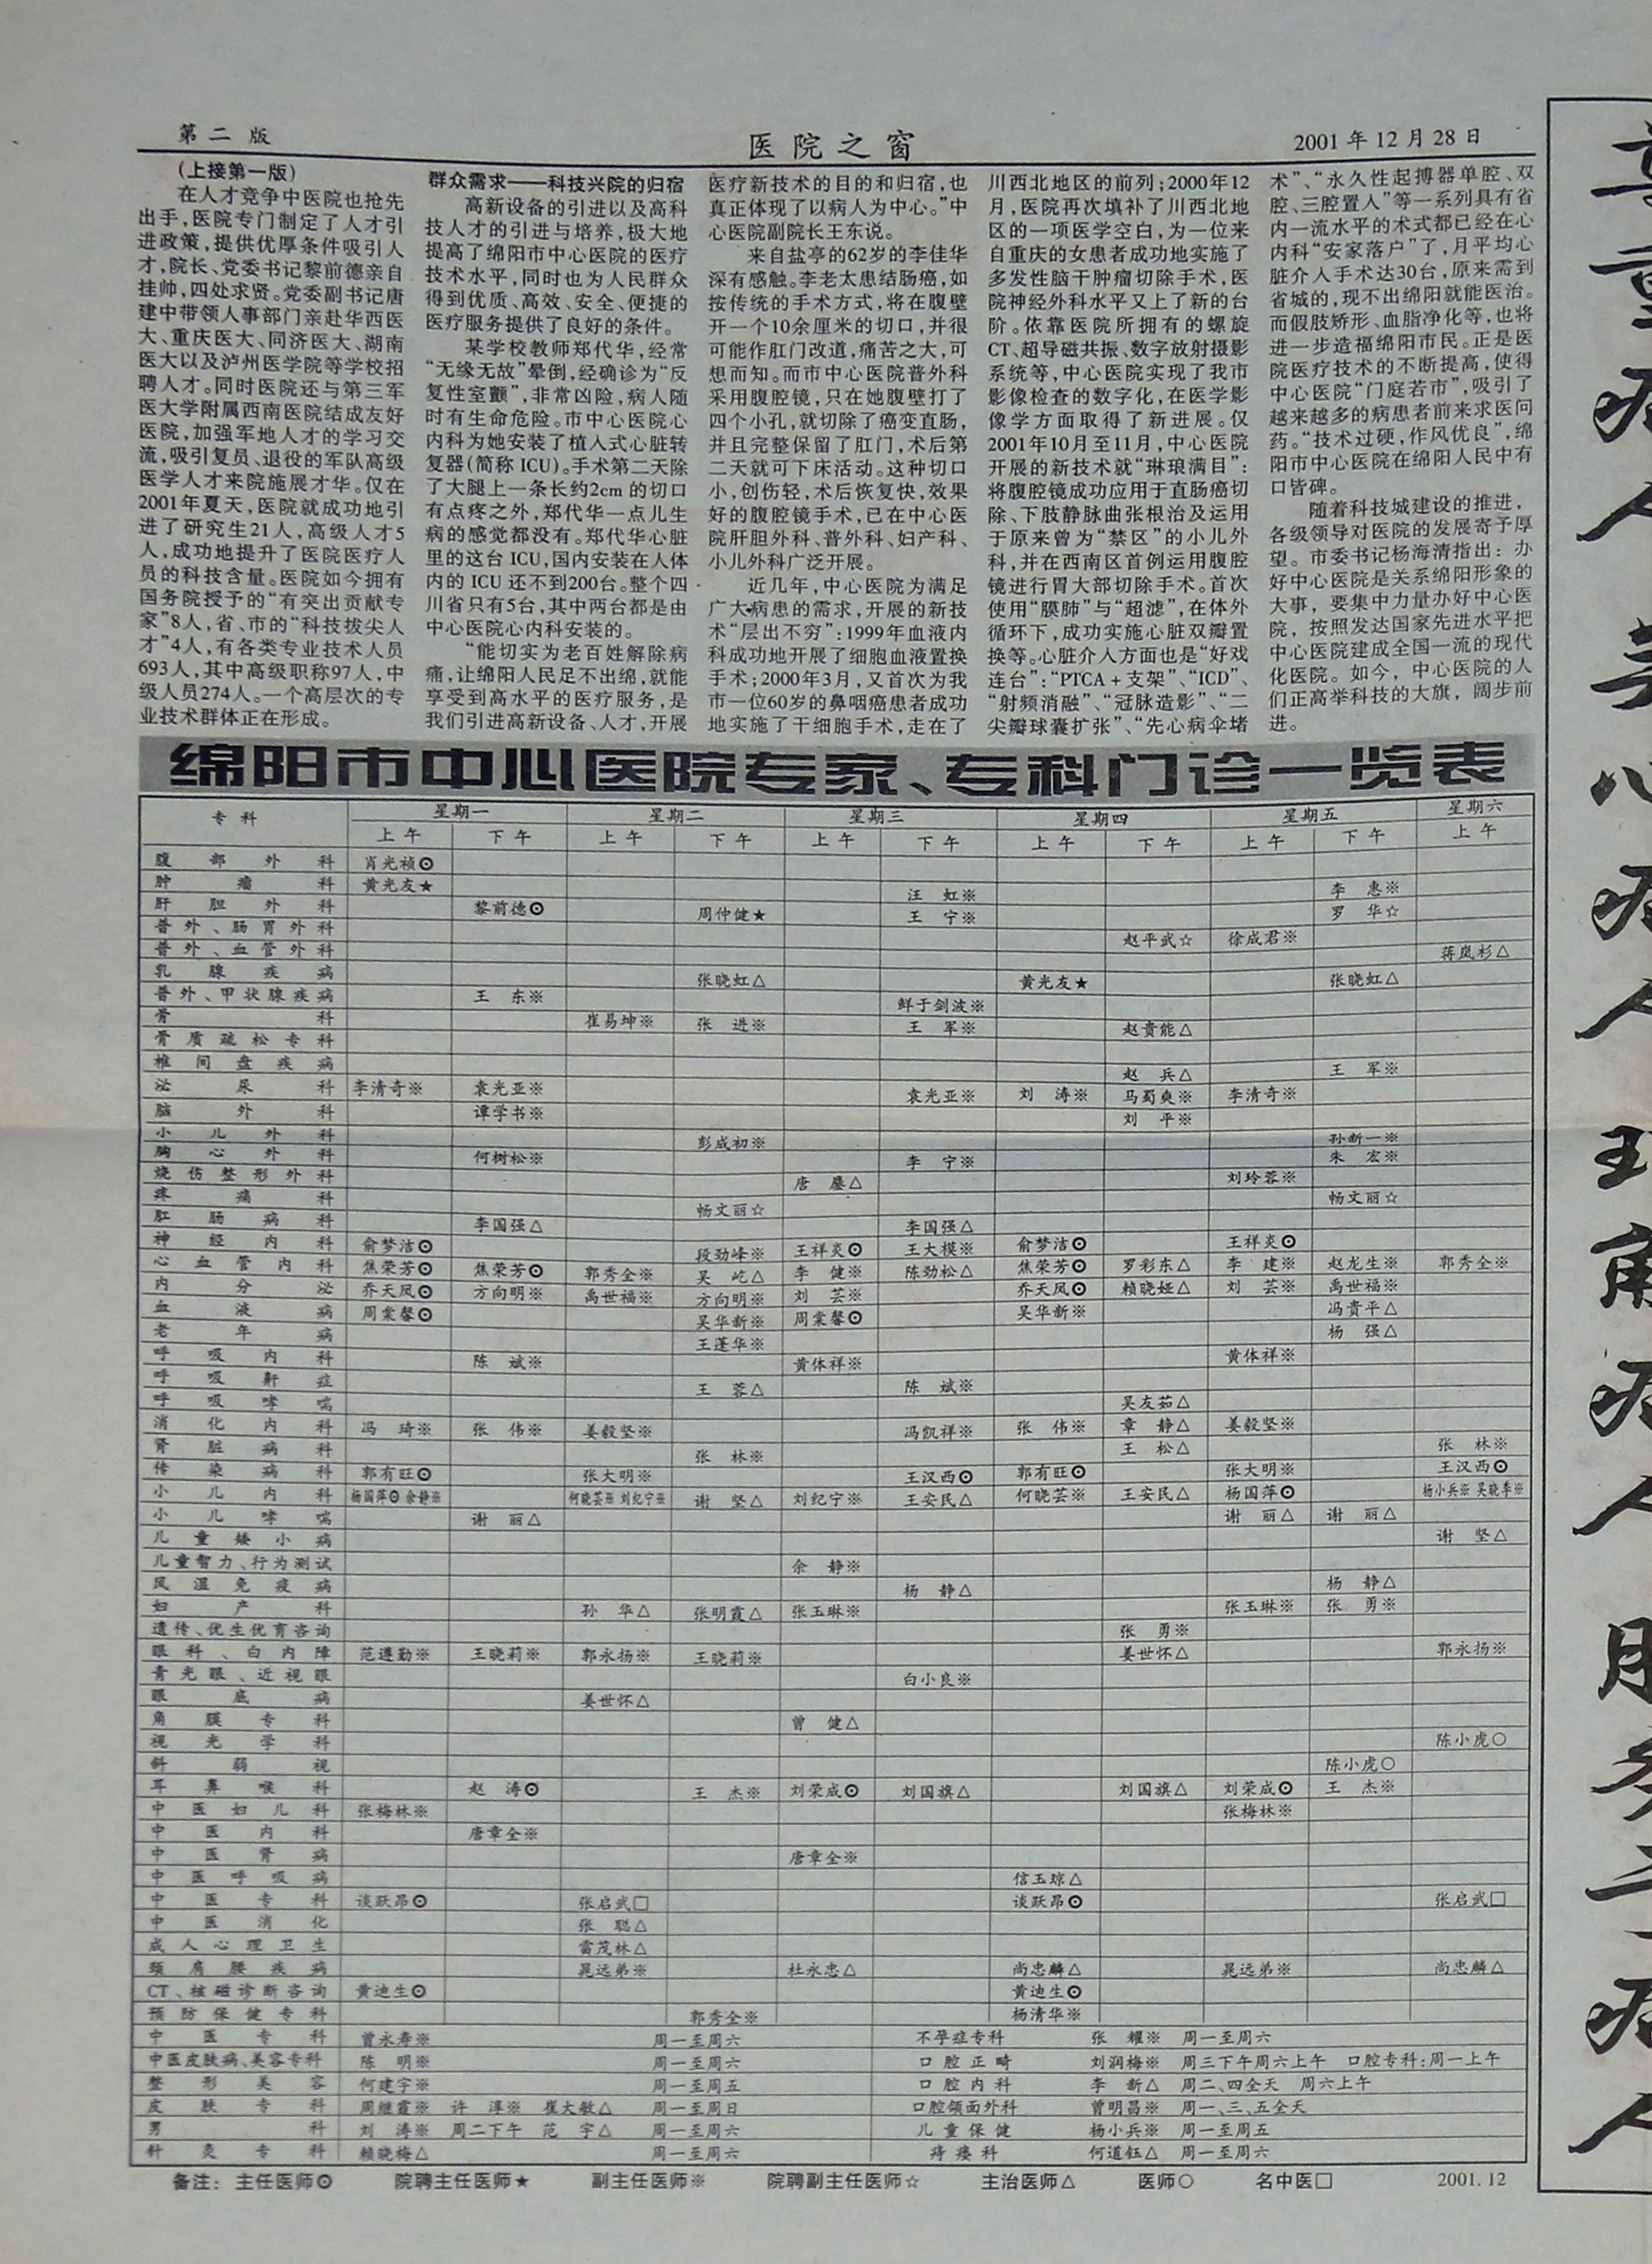 第二版
医院之窗
2001年12月28日
(上接第一版)
在人才竞争中医院也抢先
出手,医院专门制定了人才引
进政策,提供优厚条件吸引人
才,院长、党委书记黎前德亲自
挂帅,四处求贤。党委副书记唐
建中带领人事部门亲赴华西医
大、重庆医大、同济医大、湖南
医大以及泸州医学院等学校招
聘人才。同时医院还与第三军
医大学附属西南医院结成友好
医院,加强军地人才的学习交
流,吸引复员、退役的军队高级
医学人才来院施展才华。仅在
2001年夏天,医院就成功地引
进了研究生21人,高级人才5
人,成功地提升了医院医疗人
员的科技含量。医院如今拥有
国务院授予的“有突出贡献专
家”8人,省、市的“科技拔尖人
才”4人,有各类专业技术人员
693人,其中高级职称97人,中
级人员274人。一个高层次的专
业技术群体正在形成。
群众需求——科技兴院的归宿
高新设备的引进以及高科
技人才的引进与培养,极大地
提高了绵阳市中心医院的医疗
技术水平,同时也为人民群众
得到优质、高效、安全、便捷的
医疗服务提供了良好的条件。
某学校教师郑代华,经常
“无缘无故”晕倒,经确诊为“反
复性室颤”,非常凶险,病人随
时有生命危险。市中心医院心
内科为她安装了植入式心脏转
复器(简称 ICU)。手术第二天除
了大腿上一条长约2cm 的切口
有点疼之外,郑代华一点儿生
病的感觉都没有。郑代华心脏
里的这台 ICU,国内安装在人体
内的 ICU 还不到200台。整个四
川省只有5台,其中两台都是由
中心医院心内科安装的。
“能切实为老百姓解除病
痛,让绵阳人民足不出绵,就能
享受到高水平的医疗服务,是
我们引进高新设备、人才,开展
医疗新技术的目的和归宿,也
真正体现了以病人为中心。”中
心医院副院长王东说。
来自盐亭的62岁的李佳华
深有感触。李老太患结肠癌,如
按传统的手术方式,将在腹壁
开一个10余厘米的切口,并很
可能作肛门改道,痛苦之大,可
想而知。而市中心医院普外科
采用腹腔镜,只在她腹壁打了
四个小孔,就切除了癌变直肠,
并且完整保留了肛门,术后第
二天就可下床活动。这种切口
小,创伤轻,术后恢复快,效果
好的腹腔镜手术,已在中心医
院肝胆外科、普外科、妇产科、
小儿外科广泛开展。
近几年,中心医院为满足
广大病患的需求,开展的新技
术“层出不穷”:1999年血液内
科成功地开展了细胞血液置换
手术;2000年3月,又首次为我
市一位60岁的鼻咽癌患者成功
地实施了干细胞手术,走在了
川西北地区的前列;2000年12
月,医院再次填补了川西北地
区的一项医学空白,为一位来
自重庆的女患者成功地实施了
多发性脑干肿瘤切除手术,医
院神经外科水平又上了新的台
阶。依靠医院所拥有的螺旋
CT、超导磁共振、数字放射摄影
系统等,中心医院实现了我市
影像检查的数字化,在医学影
像学方面取得了新进展。仅
2001年10月至11月,中心医院
开展的新技术就“琳琅满目”:
将腹腔镜成功应用于直肠癌切
除、下肢静脉曲张根治及运用
于原来曾为“禁区”的小儿外
科,并在西南区首例运用腹腔
镜进行胃大部切除手术。首次
使用“膜肺”与“超滤”,在体外
循环下,成功实施心脏双瓣置
换等。心脏介入方面也是“好戏
连台”:“PTCA+支架”、“ICD”、
“射频消融”、“冠脉造影”、“二
尖瓣球囊扩张”、“先心病伞堵
术”、“永久性起搏器单腔、双
腔、三腔置入”等一系列具有省
内一流水平的术式都已经在心
内科“安家落户”了,月平均心
脏介入手术达30台,原来需到
省城的,现不出绵阳就能医治。
而假肢矫形、血脂净化等,也将
进一步造福绵阳市民。正是医
院医疗技术的不断提高,使得
中心医院“门庭若市”,吸引了
越来越多的病患者前来求医问
药。“技术过硬,作风优良”,绵
阳市中心医院在绵阳人民中有
口皆碑。
随着科技城建设的推进,
各级领导对医院的发展寄予厚
望。市委书记杨海清指出: 办
好中心医院是关系绵阳形象的
大事,要集中力量办好中心医
院,按照发达国家先进水平把
中心医院建成全国一流的现代
化医院。如今,中心医院的人
们正高举科技的大旗,阔步前
进。
绵阳市中心医院专家、专科门诊一览表
专科 星期一 星期二 星期三 星期四 星期五 星期六
上午 下午 上午 下午 上午 下午 上午 下午 上午 下午 上午
腹部外科 肖光祯⊙
肿瘤科 黄光友★ 汪虹※ 李惠※
肝胆外科 黎前德⊙ 周仲健★ 王宁※ 罗华☆
普外、肠胃外科 赵平武☆ 徐成君※
普外、血管外科 蒋岚杉△
乳腺疾病 张晓虹△ 黄光友★ 张晓虹△
普外、甲状腺疾病 王东※ 鲜于剑波※
骨科 崔易坤※ 张进※ 王军※ 赵贵能△
骨质疏松专科
椎间盘疾病 赵兵△ 王军※
泌尿科 李清奇※ 袁光亚※ 袁光亚※ 刘涛※ 马蜀爽※ 李清奇※
脑外科 谭学书※ 刘平※
小儿外科 彭成初※ 孙新一※
胸心外科 何树松※ 李宁※ 朱宏※
烧伤整形外科 唐屡△ 刘玲蓉※
疼痛科 畅文丽☆ 畅文丽☆
肛肠病科 李国强△ 李国强△
神经内科 俞梦洁⊙ 段劲峰※ 王祥炎⊙ 王大模※ 俞梦洁⊙ 王祥炎⊙
心血管内科 焦荣芳⊙ 焦荣芳⊙ 郭秀全※ 吴屹△ 李健※ 陈劲松△ 焦荣芳⊙ 罗彩东△ 李建※ 赵龙生※ 郭秀全※
内分泌 乔天凤⊙ 方向明※ 禹世福※ 方向明※ 刘芸※ 乔天凤⊙ 赖晓娅△ 刘芸※ 禹世福※
血液病 周棠馨⊙ 吴华新※ 周棠馨⊙ 吴华新※ 冯贵平△
老年病 王蓬华※ 杨强△
呼吸内科 陈斌※ 黄体祥※ 黄体祥※
呼吸鼾症 王蓉△ 陈斌※
呼吸哮喘 吴友茹△
消化内科 冯琦※ 张伟※ 姜毅坚※ 冯凯祥※ 张伟※ 章静△ 姜毅坚※
肾脏病科 张林※ 王松△ 张林※
传染病科 郭有旺⊙ 张大明※ 王汉西⊙ 郭有旺⊙ 张大明※ 王汉西⊙
小儿内科 杨国萍⊙ 余静※ 何晓芸※ 刘纪宁※ 谢坚△ 刘纪宁※ 王安民△ 何晓芸※ 王安民△ 杨国萍⊙ 杨小兵※ 吴晓李※
小儿哮喘 谢丽△ 谢丽△ 谢丽△
儿童矮小病 谢坚△
儿童智力、行为测试 余静※
风湿免疫病 杨静△ 杨静△
妇产科 孙华△ 张明霞△ 张玉琳※ 张玉琳※ 张勇※
遗传、优生优育咨询 张勇※
眼科、白内障 范遵勤※ 王晓莉※ 郭永扬※ 王晓莉※ 姜世怀△ 郭永扬※
青光眼、近视眼 白小良※
眼底病 姜世怀△
角膜专科 曾健△
视光学科 陈小虎○
斜弱视 陈小虎○
耳鼻喉科 赵涛⊙ 王杰※ 刘荣成⊙ 刘国旗△ 刘国旗△ 刘荣成⊙ 王杰※
中医妇儿科 张梅林※ 张梅林※
中医内科 唐章全※
中医肾病 唐章全※
中医呼吸病 信玉琼△
中医专科 谈跃昂⊙ 张启武□ 谈跃昂⊙ 张启武□
中医消化 张聪△
成人心理卫生 雷茂林△
颈肩腰疾病 晁远弟※ 杜永忠△ 尚忠麟△ 晁远弟※ 尚忠麟△
CT、核磁诊断咨询 黄迪生⊙ 黄迪生⊙
预防保健专科 郭秀全※ 杨清华※
中医专科 曾永寿※ 周一至周六 不孕症专科 张耀※ 周一至周六
中医皮肤病、美容专科 陈明※ 周一至周六 口腔正畸 刘润梅※ 周三下午周六上午 口腔专科:周一上午
整形美容 何建宇※ 周一至周五 口腔内科 李新△ 周二、四全天 周六上午
皮肤专科 周继霞※ 许淳※ 崔大敏△ 周一至周日 口腔颌面外科 曾明昌※ 周一、三、五全天
男科 刘涛※ 周二下午 范宇△ 周一至周六 儿童保健 杨小兵※ 周一至周五
针灸专科 赖晓梅△ 周一至周六 痔瘘科 何道钰△ 周一至周六
备注: 主任医师⊙ 院聘主任医师★ 副主任医师※ 院聘副主任医师☆ 主治医师△ 医师○ 名中医□ 2001.12